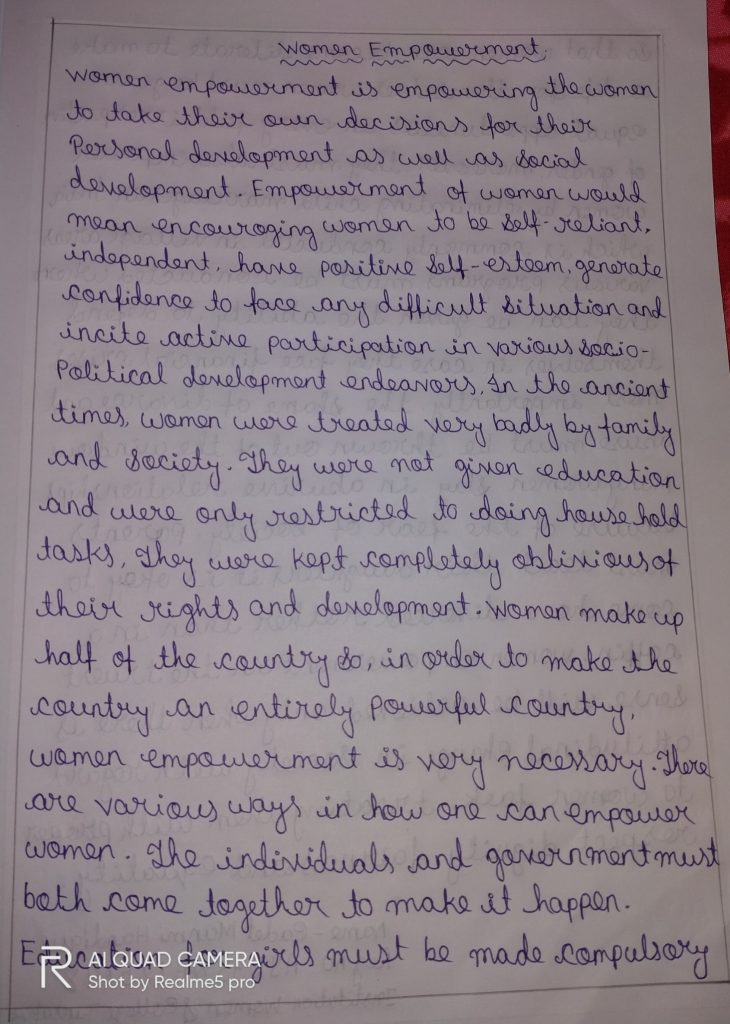 Women Empowerment.
Women empowerment is empowering the women
to take their own decisions for their
Personal development as well as social
development. Empowerment of women would
mean encouroging women to be self-reliant,
independent, have positive self-esteem, generate
confidence to face any difficult situation and
incite active participation in various socio-
Political development endeavors. In the ancient
times, women were treated very badly by family
and society. They were not given education
and were only restricted to doing house hold
tasks, They were kept completely oblivious of
their rights and development. Women make up
half of the country so, in order to make the
country an entirely powerful country,
women empowerment is very necessary. There
are various ways in how one can empower
women. The individuals and government must
both come together to make it happen.
Education for girls must be made compulsory
R AI QUAD CAMERA
Shot by Realme5 pro